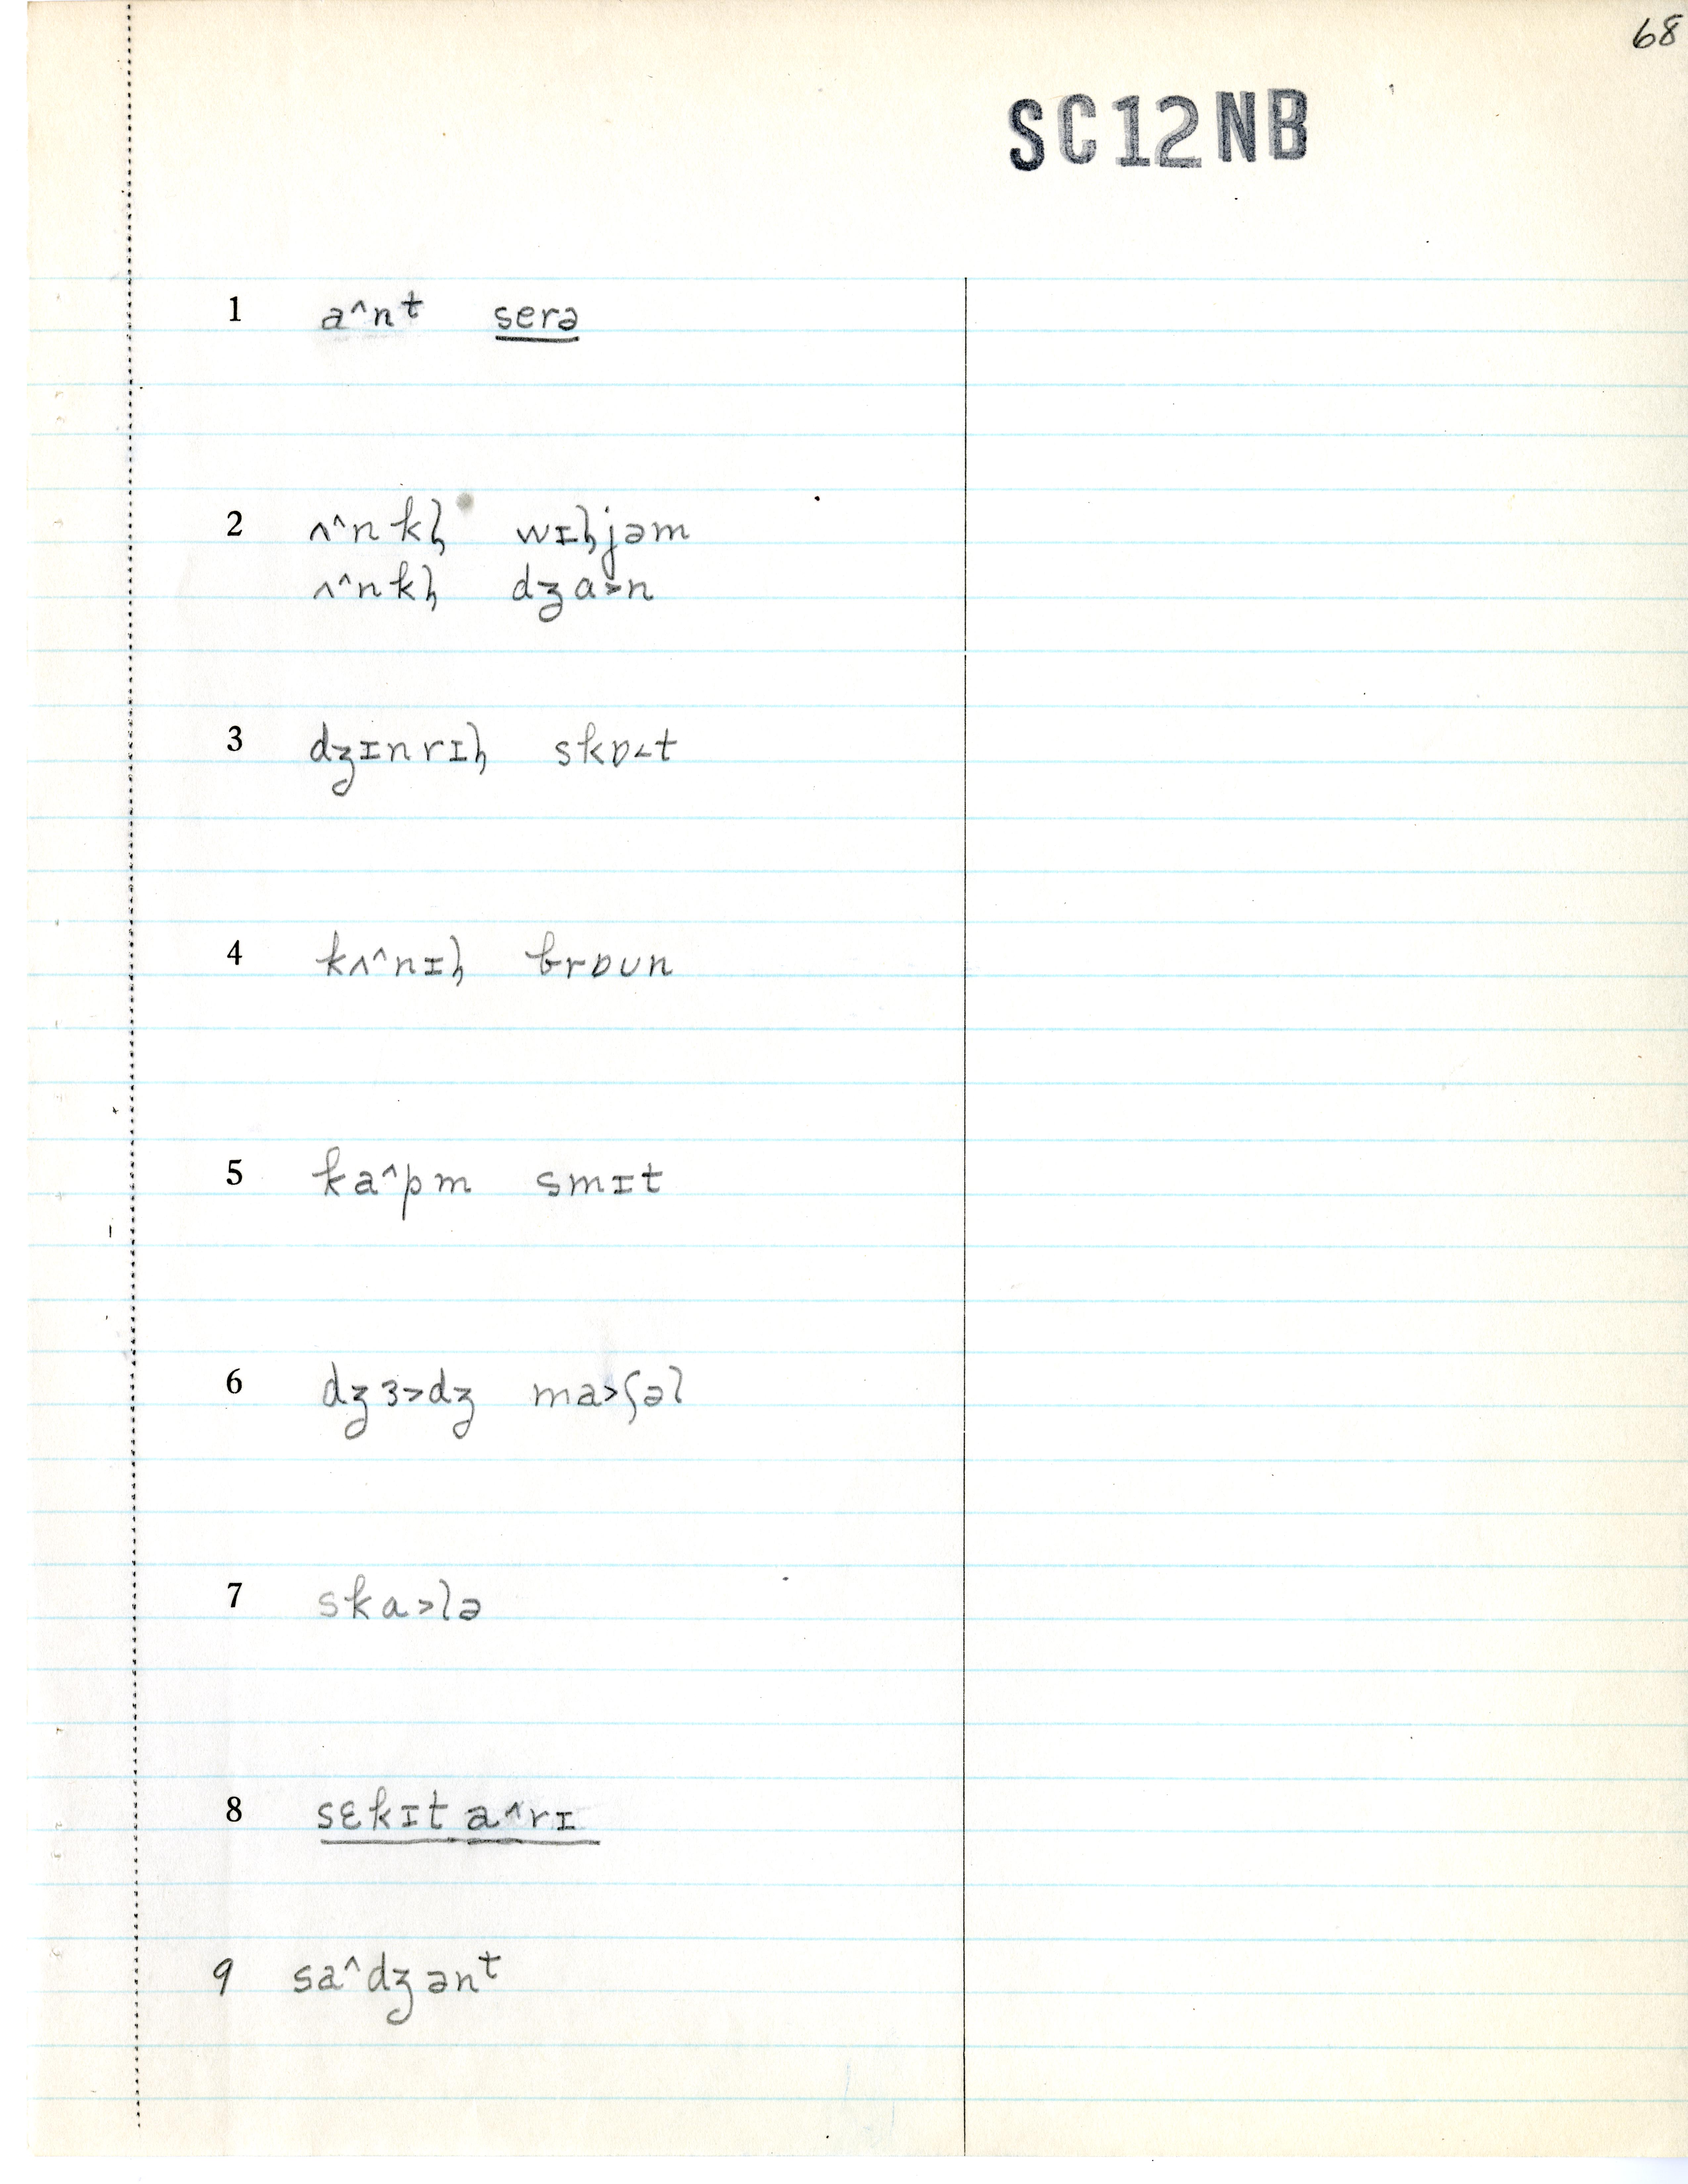 68
SC12NB
1 a^nᵗ serə
2 ʌ^nkɫ wɪɫjəm
ʌ^nkɫ dʒɑ>n
3 dʒɪnrɪɫ skɒ<t
4 kʌ^nɪɫ brɒʊn
5 ka^pm smɪt
6 dʒɜ>dʒ mɑ>ʃəl
7 skɑ>lə
8 sɛkɪta^rɪ
9 sa^dʒənᵗ